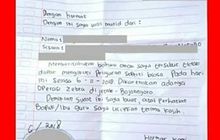 Dengan hormat
Dengan ini saya wali murid dari :
Nama :
Siswa :
Memberitahukan bahwa anak saya tersebut tidak
dapat mengikuti pelajaran seperti biasa Pada hari
ini Senin 6-11-2018. Dikarenakan adanya
Operasi Zebra di jetak - Bojonegoro
Demikian surat ini saya buat atas perhatian
Bapak/Ibu guru saya ucapkan terima kasih
6/2018
Hormat kami